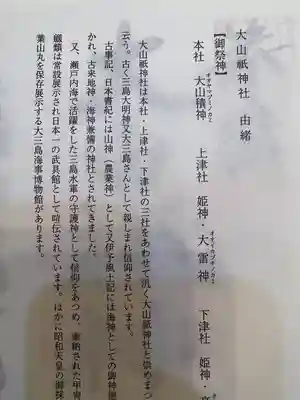 大山祇神社 由緒
【御祭神】
本社 大山積神 上津社 姫神・大雷神 下津社 姫神・
オオヤマヅミノカミ オオイカヅチノカミ
大山祇神社は本社・上津社・下津社の三社をあわせて汎く大山祇神社と崇めまつ
云う。古く三島大明神又大三島さんとして親しまれ信仰されています。
古事記、日本書紀には山神(農業神)として又伊予風土記には海神としての御神
かれ、古来地神・海神兼備の神社とされてきました。
又、瀬戸内海で活躍をした三島水軍の守護神として信仰をあつめ、奉納された甲冑
鑑類は常設展示され日本一の武具館として喧伝されています。ほかに昭和天皇の御採
葉山丸を保存展示する大三島海事博物館があります。